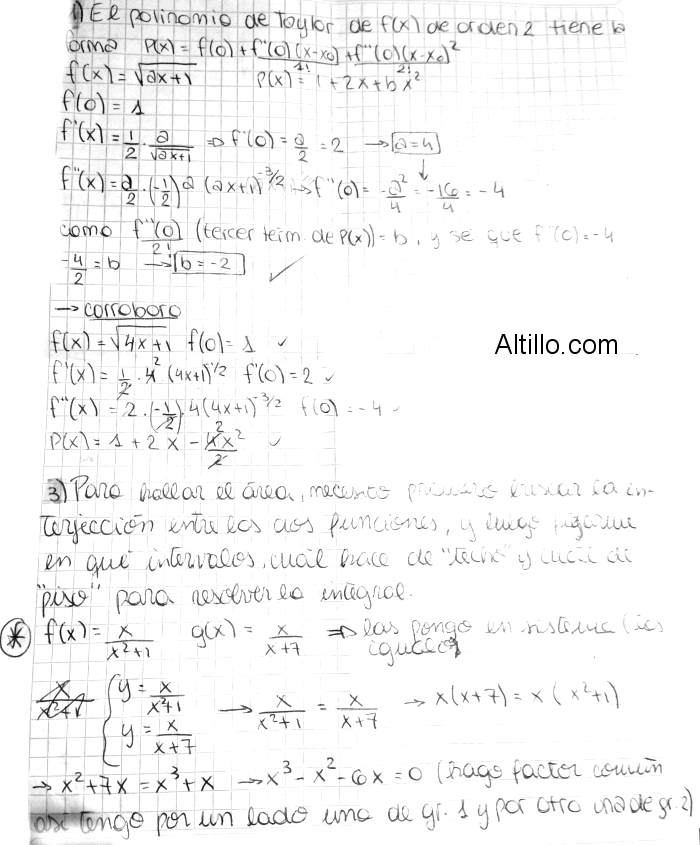 1) El polinomio de Taylor de f(x) de orden 2 tiene la
forma P(x) = f(0) + f'(0)(x-x₀)/1! + f''(0)(x-x₀)²/2!
f(x) = √(ax+1)   P(x) = 1 + 2x + bx²
f(0) = 1
f'(x) = 1/2 · a/√(ax+1) ⇒ f'(0) = a/2 = 2 → a=4
f''(x) = a/2 · (-1/2) a (ax+1)^(-3/2) → f''(0) = -a²/4 = -16/4 = -4
como f''(0)/2! (tercer term. de P(x)) = b, y se que f''(0) = -4
-4/2 = b → b = -2 ✓
→ corroboro
f(x) = √(4x+1) f(0) = 1 ✓
f'(x) = 1/2 · 4 2 (4x+1)^(1/2) f'(0) = 2 ✓
f''(x) = 2 · (-1/2) 4 (4x+1)^(-3/2) f(0) = -4 ✓
P(x) = 1 + 2x - 4 2 x²/2 ✓
Altillo.com
3) Para hallar el área, necesito primero buscar la in-
terjección entre las dos funciones, y luego fijarme
en qué intervalos, cuál hace de "techo" y cuál de
"piso" para resolver la integral.
* f(x) = x/(x²+1)   g(x) = x/(x+7) ⇒ las pongo en sistema (las
igualo)
x/(x²+1) { y = x/(x²+1)
y = x/(x+7) → x/(x²+1) = x/(x+7) → x(x+7) = x(x²+1)
→ x²+7x = x³+x → x³-x²-6x = 0 (hago factor común
así tengo por un lado uno de gr. 1 y por otro uno de gr. 2)